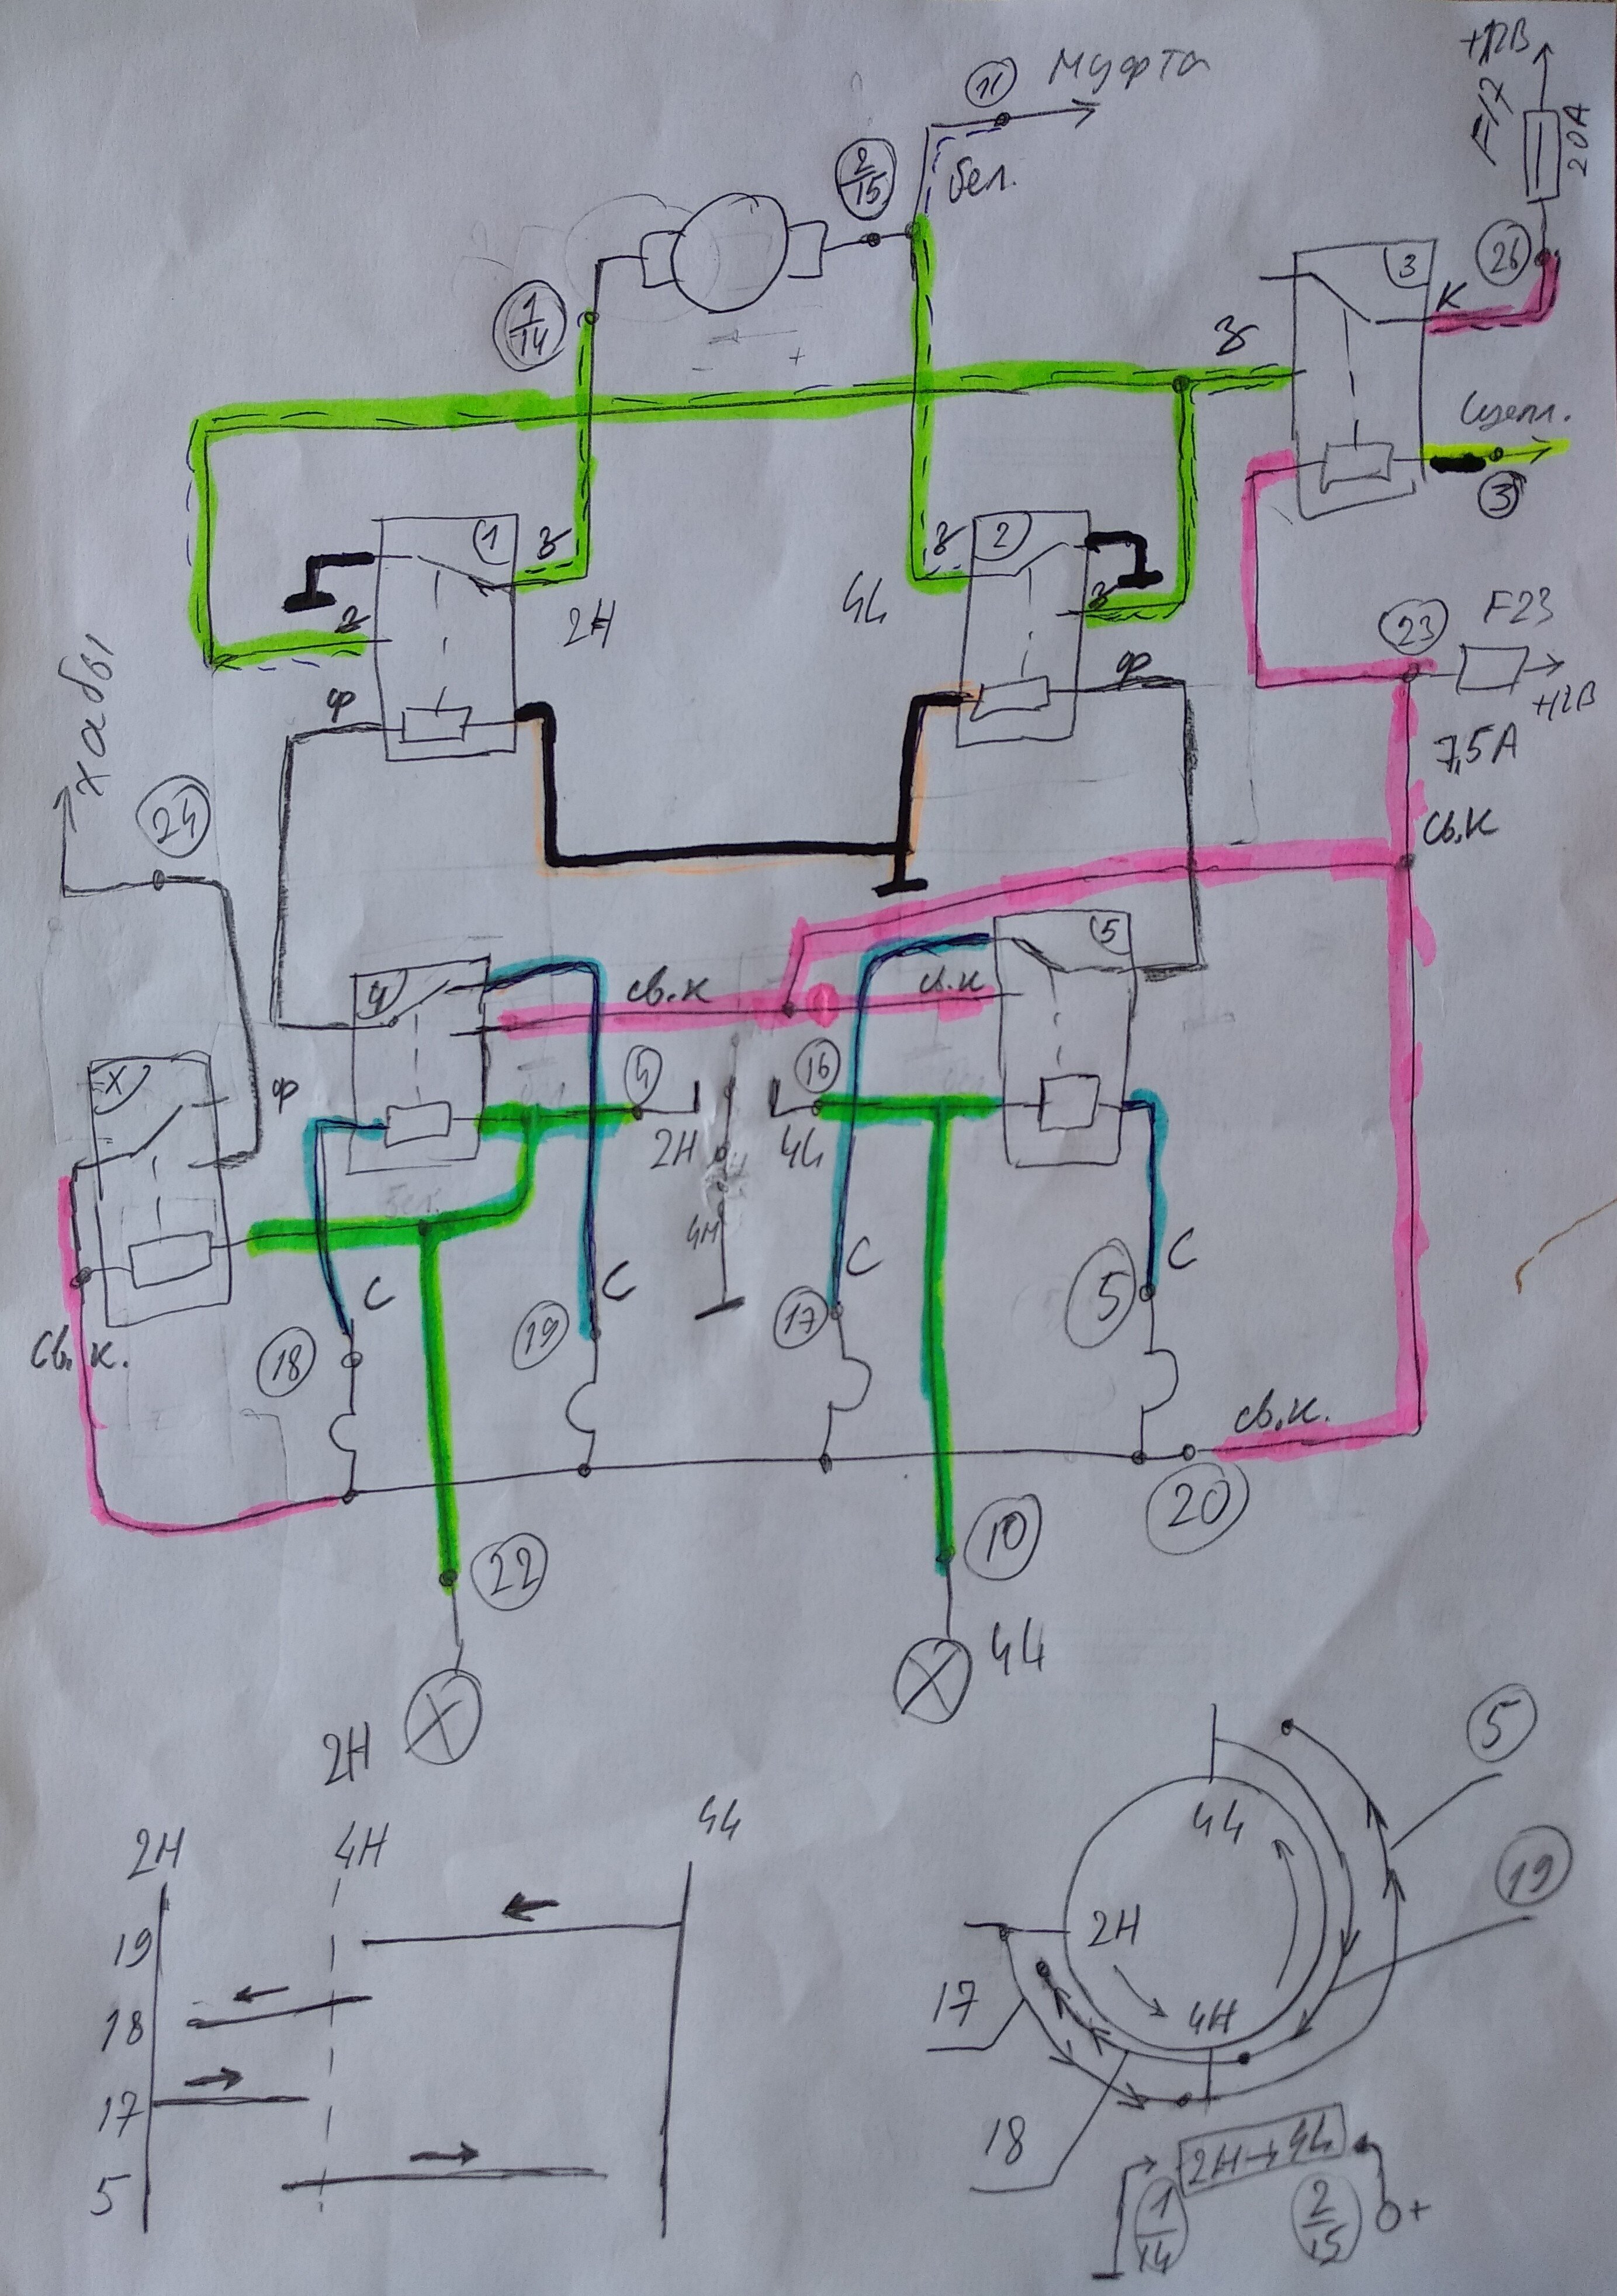 +12В
11
Муфта
F17
20А
2
15
бел.
26
3
К
1
14
+
–
З
Сцепл.
3
1
З
З
2
2Н
4L
З
З
23
F23
+12В
7,5А
ф
ф
хабы
24
св.к
5
4
св.к
св.к
X
ф
9
16
2Н
4L
4Н
С
С
С
С
5
18
19
17
св.к.
св.к.
20
22
10
4L
2Н
5
2Н
4Н
4L
4L
19
19
2Н
18
17
4Н
17
5
18
2Н→4L
1
14
2
15
+